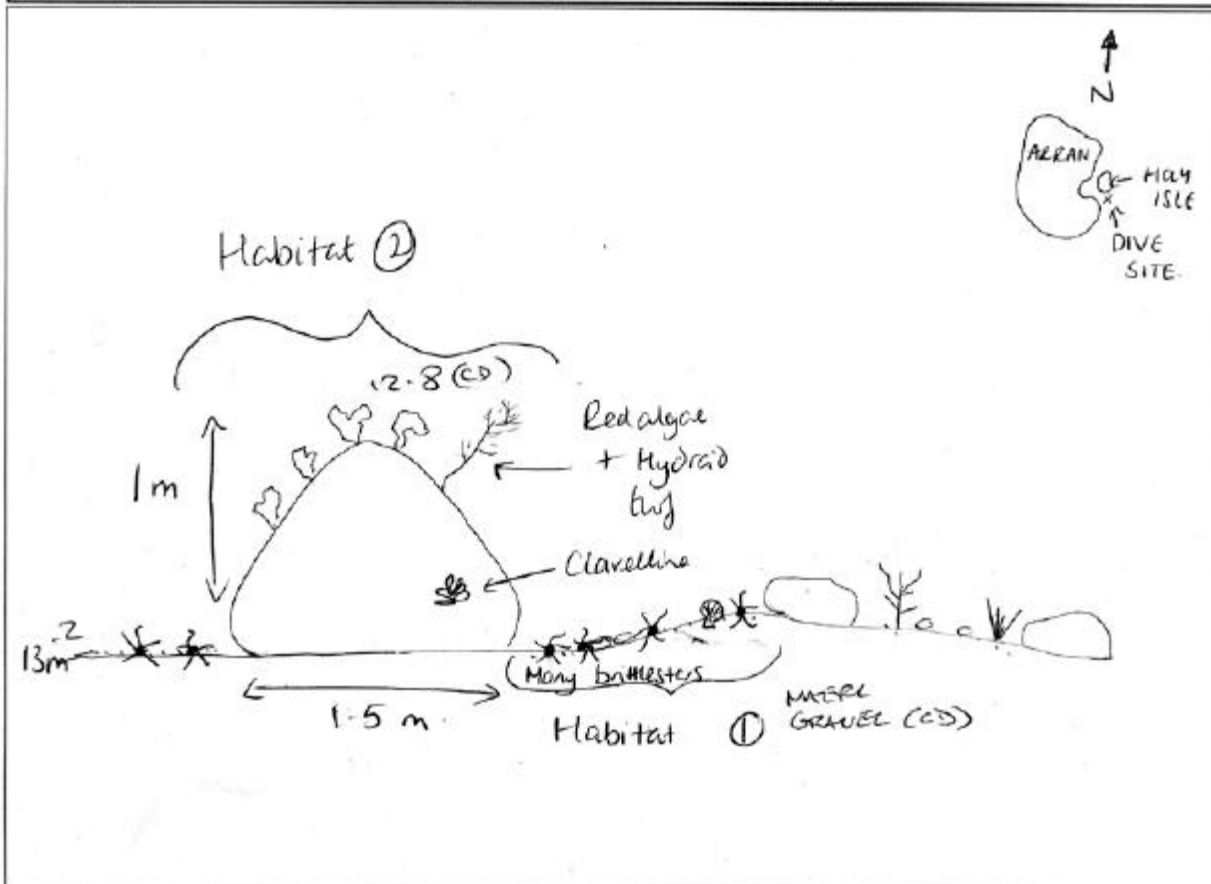 N
ARRAN
HOLY
ISLE
DIVE
SITE.
Habitat ②
12.8 (CD)
1m
Red algae
+ Hydroid
turf
Clavelline
13.2m
Many brittlesters
1.5 m.
Habitat ①
MAERL
GRAVEL (CD)